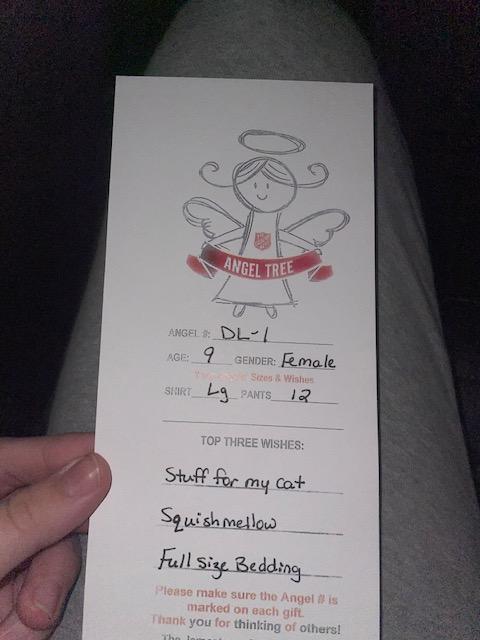 ANGEL TREE
ANGEL #: DL-1
AGE: 9 GENDER: Female
Sizes & Wishes
SHIRT Lg PANTS 12
TOP THREE WISHES:
Stuff for my cat
Squishmellow
Full Size Bedding
Please make sure the Angel # is
marked on each gift.
Thank you for thinking of others!